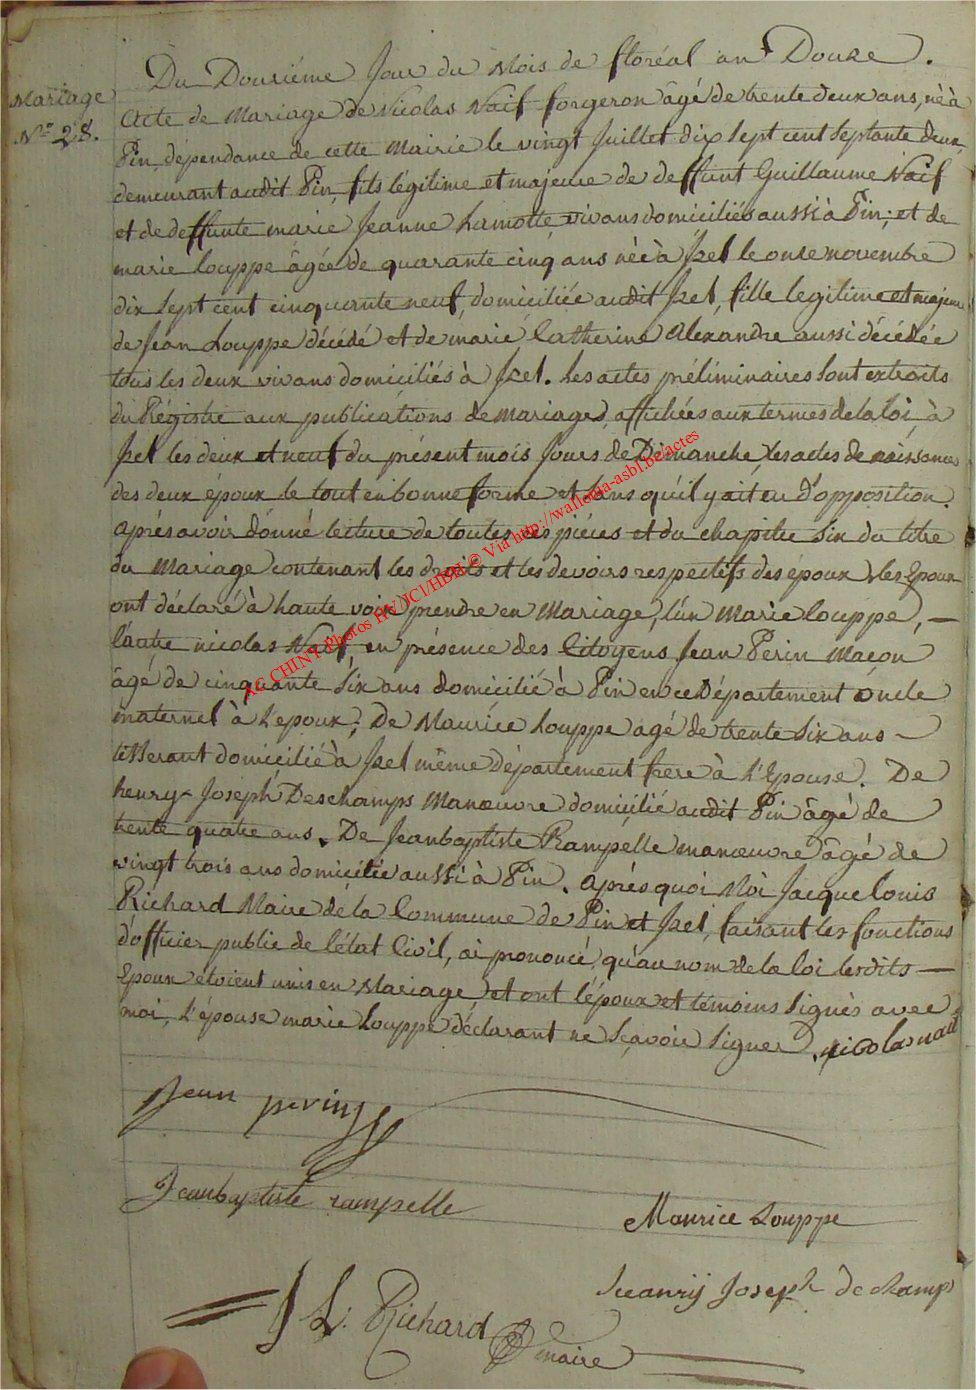 Mariage
N.º 28.
Du Douziéme Jour du Mois de floréal an Douze.
Acte de Mariage de Nicolas Naif forgeron âgé de trente deux ans, né à
Pin, dépendance de cette Mairie le vingt Juillet dix sept cent septante deux,
demeurant audit Pin, fils légitime et majeure de deffunt Guillaume Naif
et de deffunte marie Jeanne Lamotte, vivans domiciliés aussi à Pin; et de
marie Louppe âgée de quarante cinq ans née à Jzel le onze novembre
dix sept cent cinquante neuf, domiciliée audit Jzel, fille legitime et majeure
de Jean Louppe décédé et de marie Catherine Alexandre aussi décédée
tous les deux vivans domiciliés à Jzel. Les actes préliminaires sont extraits
du Régistre aux publications de mariages, affichées aux termes de la loi, à
Jzel les deux et neuf du présent mois Jours de Dimanche, les actes de naissances
des deux époux le tout en bonne forme et sans qu'il y ait eu d'opposition.
après avoir donné lecture de toutes ces piéces et du chapitre six du titre
du Mariage contenant les droits et les devoirs respectifs des époux, les Epoux
ont déclaré à haute voix prendre en Mariage, l'ún Marie louppe, —
l'autre nicolas Naif, en présence des Citoyens Jean Perin Maçon
âgé de cinquante six ans domicilié à Pin en ce Département oncle
maternel à L'epoux; De Maurice Louppe agé de trente six ans —
tisserant domicilié à Jzel même département frere à L'Epouse. De
henry Joseph Deschamps Manœuvre domicilié audit Pin âgé de
trente quatre ans. De Jeanbaptiste Rampelle manœuvre âgé de
vingt trois ans domicilié aussi à Pin. après quoi Moi Jacque Louis
Richard Maire de la Commune de Pin et Jzel, faisant les fonctions
d'officier public de l'état Civil, ai prononcé, qu'au nom de la loi lesdits —
Epoux étoient unis en Mariage, et ont l'époux et témoins signés avec
moi, L'épouse marie Louppe déclarant ne sçavoir signer. nicolas naif
Jean perin
Jeanbaptiste rampelle
Maurice Louppe
heanrij Joseph de champs
J L. Richard
maire
AG CHINY Photos HV/JCI/HBH © Via http://wallonia-asbl.be/actes